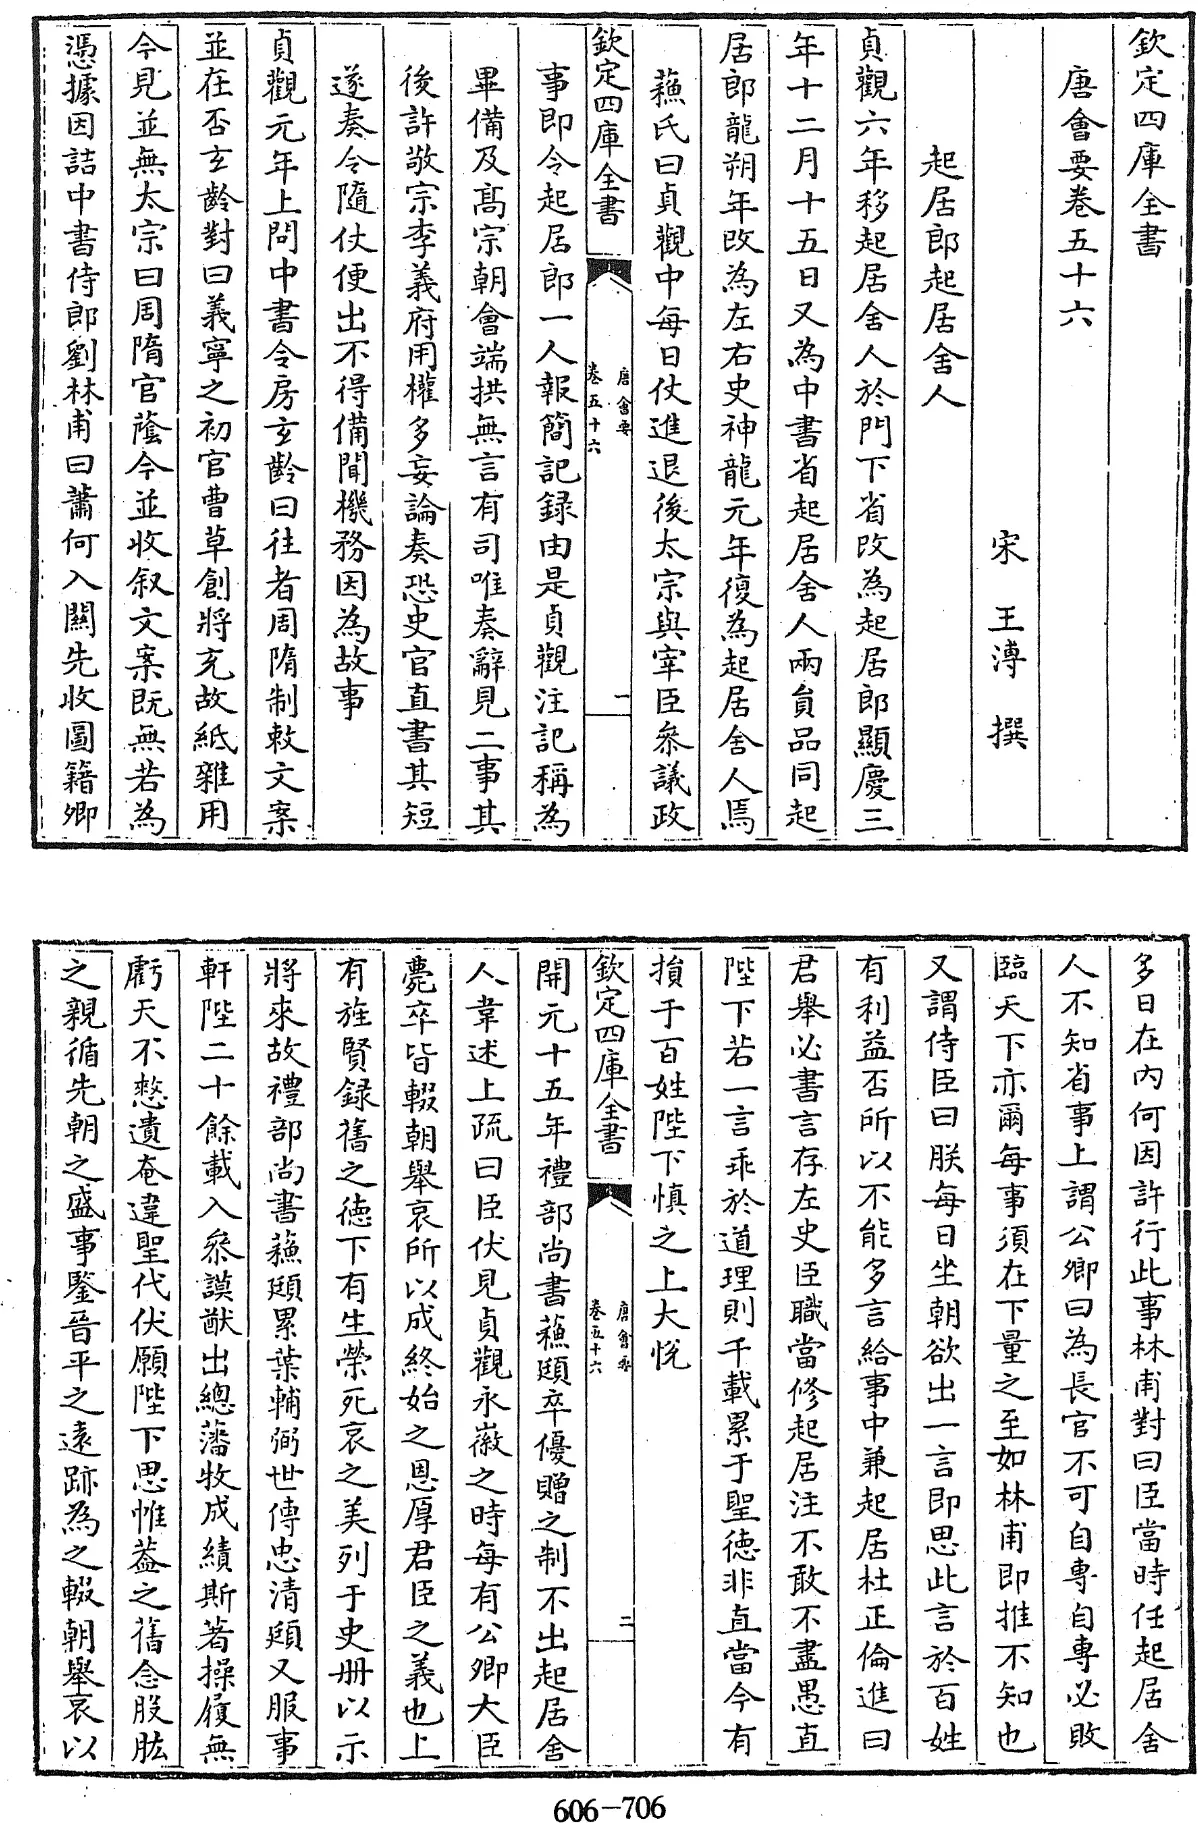 欽定四庫全書
唐會要卷五十六
宋 王溥 撰
起居郎起居舍人
貞觀六年移起居舍人於門下省改為起居郎顯慶三
年十二月十五日又為中書省起居舍人兩員品同起
居郎龍朔年改為左右史神龍元年復為起居舍人焉
蘓氏曰貞觀中每日仗進退後太宗與宰臣叅議政
欽定四庫全書
唐會要
卷五十六
一
事即令起居郎一人報簡記録由是貞觀注記稱為
畢備及髙宗朝會端拱無言有司唯奏辭見二事其
後許敬宗李義府用權多妄論奏恐史官直書其短
遂奏令隨仗便出不得備聞機務因為故事
貞觀元年上問中書令房玄齡曰往者周隋制敕文案
並在否玄齡對曰義寧之初官曹草創將充故紙雜用
今見並無太宗曰周隋官蔭今並收叙文案既無若為
憑據因詰中書侍郎劉林甫曰蕭何入關先收圖籍卿
多日在內何因許行此事林甫對曰臣當時任起居舍
人不知省事上謂公卿曰為長官不可自專自專必敗
臨天下亦爾每事須在下量之至如林甫即推不知也
又謂侍臣曰朕每日坐朝欲出一言即思此言於百姓
有利益否所以不能多言給事中兼起居杜正倫進曰
君舉必書言存左史臣職當修起居注不敢不盡愚直
陛下若一言乖於道理則千載累于聖德非直當今有
損于百姓陛下慎之上大悅
欽定四庫全書
唐會要
卷五十六
二
開元十五年禮部尚書蘓頲卒優贈之制不出起居舍
人韋述上疏曰臣伏見貞觀永徽之時每有公卿大臣
薨卒皆輟朝舉哀所以成終始之恩厚君臣之義也上
有旌賢録舊之德下有生榮死哀之美列于史册以示
將來故禮部尚書蘓頲累葉輔弼世傳忠清頲又服事
軒陛二十餘載入叅謨猷出總藩牧成績斯著操履無
虧天不憗遺奄違聖代伏願陛下思帷葢之舊念股肱
之親循先朝之盛事鑒晉平之遠跡為之輟朝舉哀以
606-706